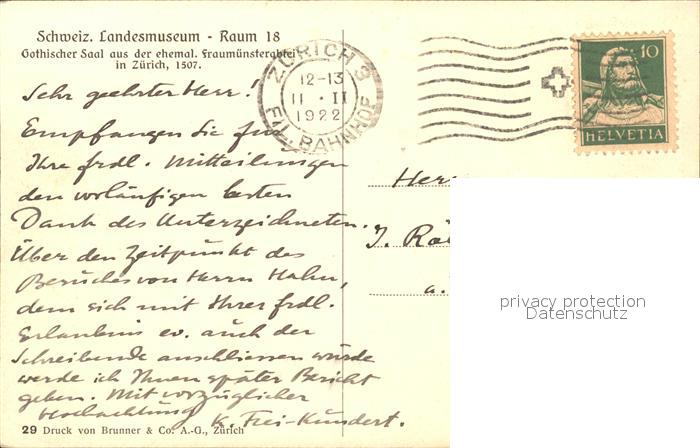 Schweiz. Landesmuseum - Raum 18
Gothischer Saal aus der ehemal. Fraumünsterabtei
in Zürich, 1507.
ZÜRICH 3
12-13
11.II
1922
FIL. BAHNHOF
10
HELVETIA
Sehr geehrter Herr!
Empfangen Sie für
Ihre frdl. Mitteilungen
den vorläufigen besten
Dank des Unterzeichneten.
Über den Zeitpunkt des
Besuches von Herrn Hahn,
dem sich mit Ihrer frdl.
Erlaubnis ev. auch der
Schreibende anschliessen würde
werde ich Ihnen später Bericht
geben. Mit vorzüglicher
Hochachtung
K. Frei-Kundert.
Her
J. Rä
a.
privacy protection
Datenschutz
29 Druck von Brunner & Co. A.-G., Zürich